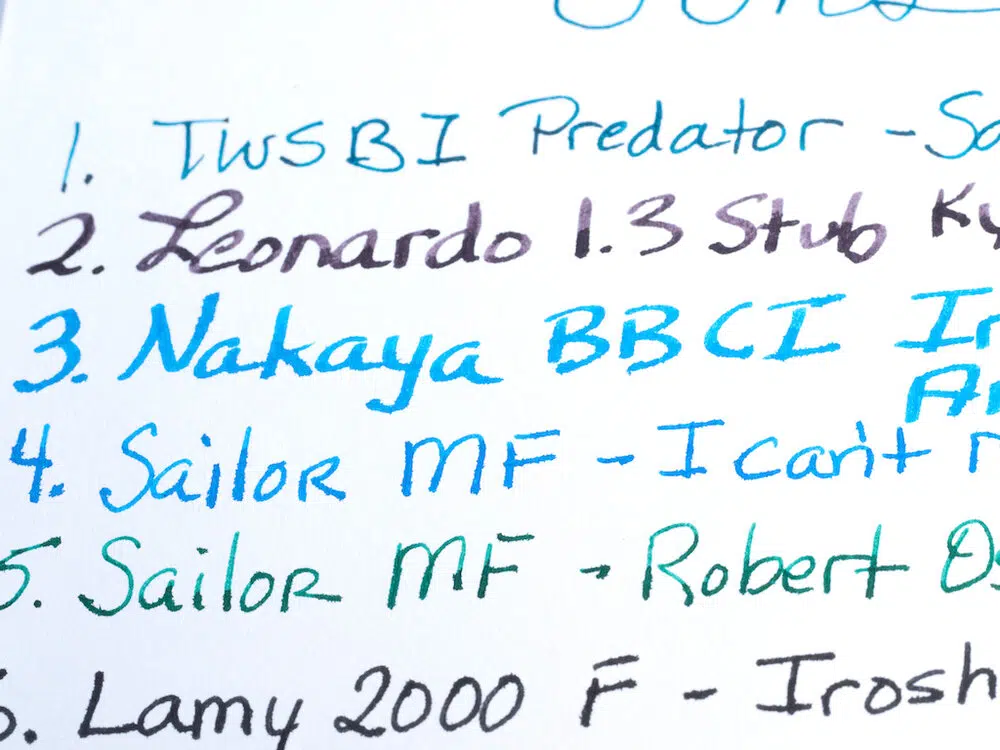 1. TWSBI Predator - Sa
2. Leonardo 1.3 Stub Ky
3. Nakaya BBCI Ir
Ar
4. Sailor MF - I can't r
5. Sailor MF - Robert Os
6. Lamy 2000 F - Irosh